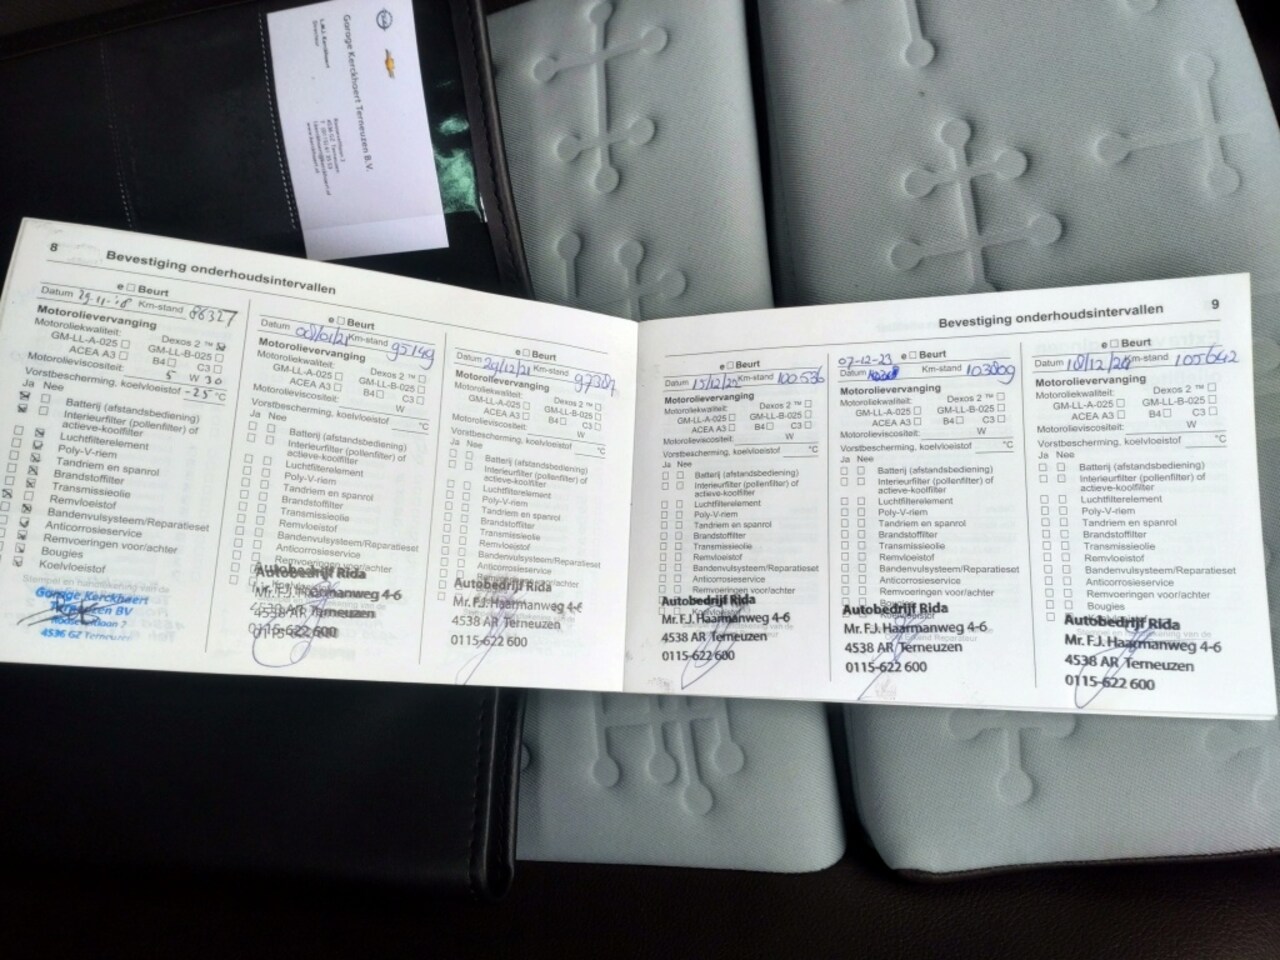 Garage Kerckhaert Terneuzen B.V.
4536 GZ Terneuzen
8
Bevestiging onderhoudsintervallen
e □ Beurt
Datum 29.11.'18 Km-stand 86327
Motorolievervanging
Motoroliekwaliteit: Dexos 2 ™ ☒
GM-LL-A-025 □ GM-LL-B-025 □
ACEA A3 □ B4 □ C3 □
Motorolieviscositeit: 5 W 30
Vorstbescherming, koelvloeistof -25 °C
Ja Nee
Batterij (afstandsbediening)
Interieurfilter (pollenfilter) of
actieve-koolfilter
Luchtfilterelement
Poly-V-riem
Tandriem en spanrol
Brandstoffilter
Transmissieolie
Remvloeistof
Bandenvulsysteem/Reparatieset
Anticorrosieservice
Remvoeringen voor/achter
Bougies
Koelvloeistof
Garage Kerckhaert
Terneuzen BV
4536 GZ Terneuzen
e □ Beurt
Datum 08/01/21 Km-stand 95149
Motorolievervanging
Motoroliekwaliteit: Dexos 2 ™ □
GM-LL-A-025 □ GM-LL-B-025 □
ACEA A3 □ B4 □ C3 □
Motorolieviscositeit: W
Vorstbescherming, koelvloeistof °C
Ja Nee
Batterij (afstandsbediening)
Interieurfilter (pollenfilter) of
actieve-koolfilter
Luchtfilterelement
Poly-V-riem
Tandriem en spanrol
Brandstoffilter
Transmissieolie
Remvloeistof
Bandenvulsysteem/Reparatieset
Anticorrosieservice
Remvoeringen voor/achter
Autobedrijf Rida
Mr. F.J. Haarmanweg 4-6
4538 AR Terneuzen
0115-622 600
e □ Beurt
Datum 29/12/21 Km-stand 97387
Motorolievervanging
Motoroliekwaliteit: Dexos 2 ™ □
GM-LL-A-025 □ GM-LL-B-025 □
ACEA A3 □ B4 □ C3 □
Motorolieviscositeit: W
Vorstbescherming, koelvloeistof °C
Ja Nee
Batterij (afstandsbediening)
Interieurfilter (pollenfilter) of
actieve-koolfilter
Luchtfilterelement
Poly-V-riem
Tandriem en spanrol
Brandstoffilter
Transmissieolie
Remvloeistof
Bandenvulsysteem/Reparatieset
Anticorrosieservice
Remvoeringen voor/achter
Autobedrijf Rida
Mr. F.J. Haarmanweg 4-6
4538 AR Terneuzen
0115-622 600
Bevestiging onderhoudsintervallen
9
e □ Beurt
Datum 15/12/22 Km-stand 100.536
Motorolievervanging
Motoroliekwaliteit: Dexos 2 ™ □
GM-LL-A-025 □ GM-LL-B-025 □
ACEA A3 □ B4 □ C3 □
Motorolieviscositeit: W
Vorstbescherming, koelvloeistof °C
Ja Nee
Batterij (afstandsbediening)
Interieurfilter (pollenfilter) of
actieve-koolfilter
Luchtfilterelement
Poly-V-riem
Tandriem en spanrol
Brandstoffilter
Transmissieolie
Remvloeistof
Bandenvulsysteem/Reparatieset
Anticorrosieservice
Remvoeringen voor/achter
Autobedrijf Rida
Mr. F.J. Haarmanweg 4-6
4538 AR Terneuzen
0115-622 600
07-12-23 e □ Beurt
Datum Km-stand 103809
Motorolievervanging
Motoroliekwaliteit: Dexos 2 ™ □
GM-LL-A-025 □ GM-LL-B-025 □
ACEA A3 □ B4 □ C3 □
Motorolieviscositeit: W
Vorstbescherming, koelvloeistof °C
Ja Nee
Batterij (afstandsbediening)
Interieurfilter (pollenfilter) of
actieve-koolfilter
Luchtfilterelement
Poly-V-riem
Tandriem en spanrol
Brandstoffilter
Transmissieolie
Remvloeistof
Bandenvulsysteem/Reparatieset
Anticorrosieservice
Remvoeringen voor/achter
Autobedrijf Rida
Mr. F.J. Haarmanweg 4-6
4538 AR Terneuzen
0115-622 600
e □ Beurt
Datum 18/12/24 Km-stand 105642
Motorolievervanging
Motoroliekwaliteit: Dexos 2 ™ □
GM-LL-A-025 □ GM-LL-B-025 □
ACEA A3 □ B4 □ C3 □
Motorolieviscositeit: W
Vorstbescherming, koelvloeistof °C
Ja Nee
Batterij (afstandsbediening)
Interieurfilter (pollenfilter) of
actieve-koolfilter
Luchtfilterelement
Poly-V-riem
Tandriem en spanrol
Brandstoffilter
Transmissieolie
Remvloeistof
Bandenvulsysteem/Reparatieset
Anticorrosieservice
Remvoeringen voor/achter
Bougies
Autobedrijf Rida
Mr. F.J. Haarmanweg 4-6
4538 AR Terneuzen
0115-622 600